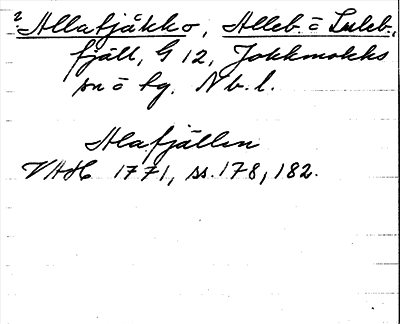 ? Allatjåkko, Alleb. o Luleb.,
fjäll, G 12, Jokkmokks
sn o tg. Nb. l.
Alafjällen
VAH 1771, ss. 178, 182.